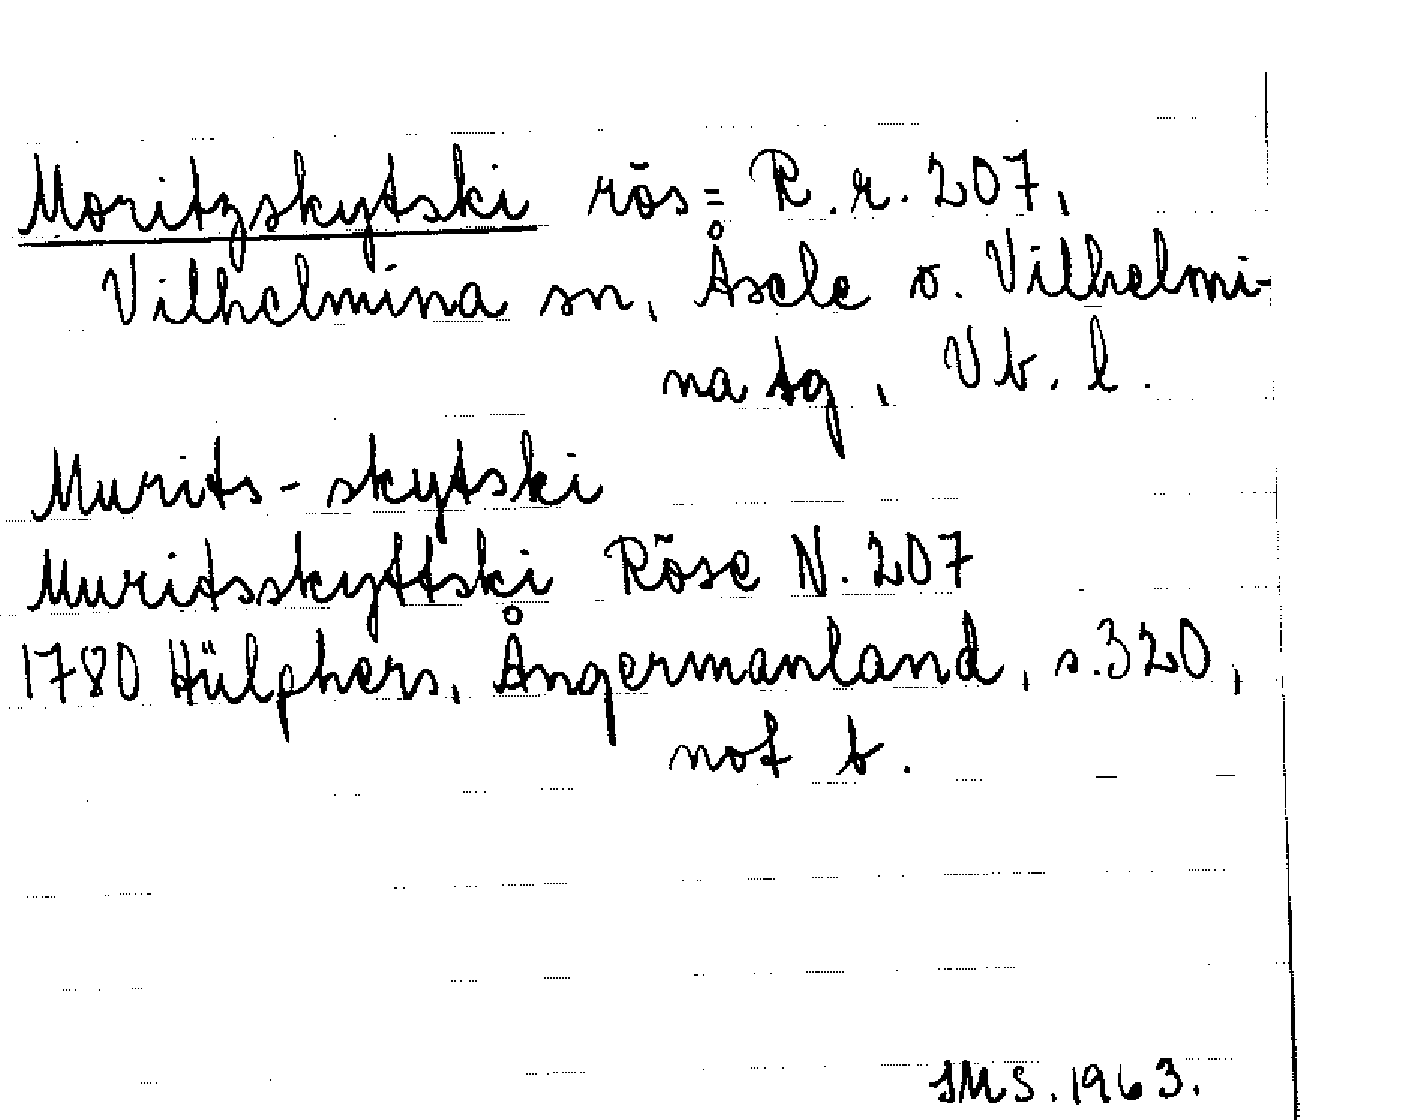 Moritzskytski rös= R.r. 207,
Vilhelmina sn, Åsele o. Vilhelmi-
na tg, Vb. l.
Murits-skytski
Muritsskyttski Röse N. 207
1780 Hülphers, Ångermanland, s. 320,
not b.
SMS. 1963.